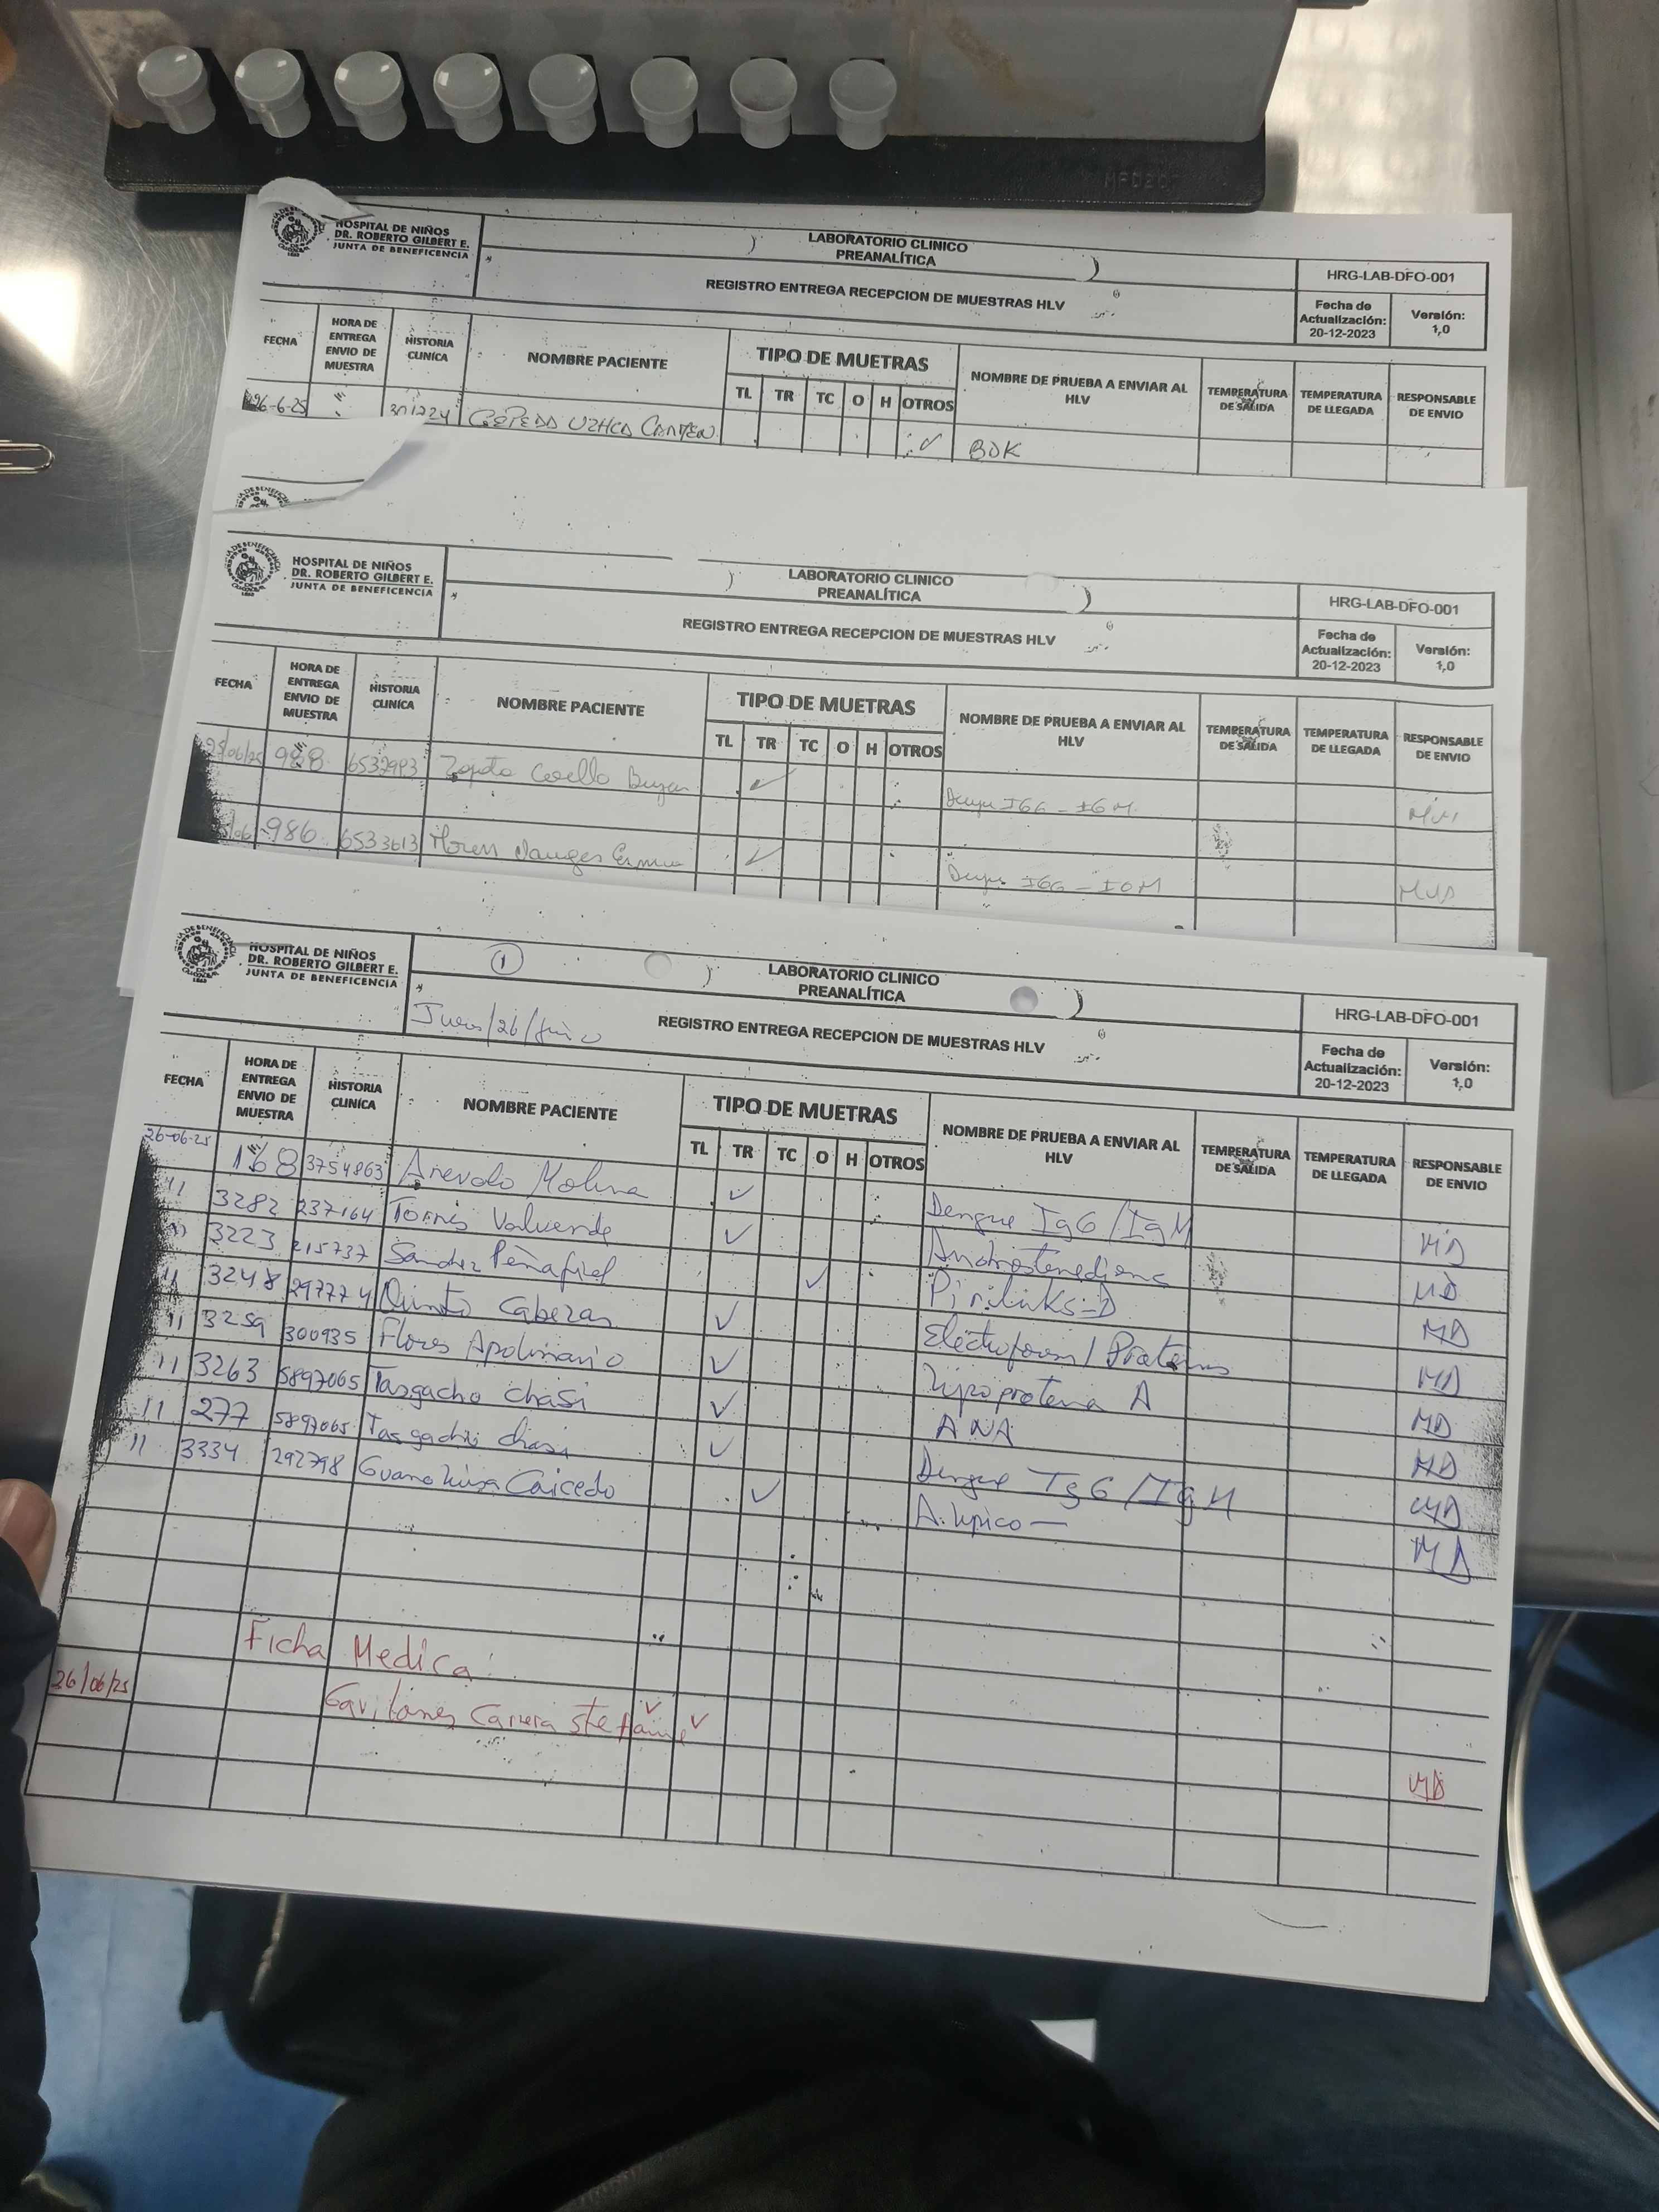 MF020
HOSPITAL DE NIÑOS
DR. ROBERTO GILBERT E.
JUNTA DE BENEFICENCIA
LABORATORIO CLINICO
PREANALÍTICA
REGISTRO ENTREGA RECEPCION DE MUESTRAS HLV
HRG-LAB-DFO-001
Fecha de Actualización: 20-12-2023
Versión: 1,0
FECHA HORA DE ENTREGA ENVIO DE MUESTRA HISTORIA CLINÍCA NOMBRE PACIENTE TIPO DE MUETRAS NOMBRE DE PRUEBA A ENVIAR AL HLV TEMPERATURA DE SALIDA TEMPERATURA DE LLEGADA RESPONSABLE DE ENVIO
TL TR TC O H OTROS
26-6-25 301224 CEPEDA ✓ BDK
HOSPITAL DE NIÑOS
DR. ROBERTO GILBERT E.
JUNTA DE BENEFICENCIA
LABORATORIO CLINICO
PREANALÍTICA
REGISTRO ENTREGA RECEPCION DE MUESTRAS HLV
HRG-LAB-DFO-001
Fecha de Actualización: 20-12-2023
Versión: 1,0
FECHA HORA DE ENTREGA ENVIO DE MUESTRA HISTORIA CLINÍCA NOMBRE PACIENTE TIPO DE MUETRAS NOMBRE DE PRUEBA A ENVIAR AL HLV TEMPERATURA DE SALIDA TEMPERATURA DE LLEGADA RESPONSABLE DE ENVIO
TL TR TC O H OTROS
988 6532993 Zapata ✓ IGG - IGM
986 6533613 ✓ IGG - IGM
HOSPITAL DE NIÑOS
DR. ROBERTO GILBERT E.
JUNTA DE BENEFICENCIA
1
LABORATORIO CLINICO
PREANALÍTICA
REGISTRO ENTREGA RECEPCION DE MUESTRAS HLV
HRG-LAB-DFO-001
Fecha de Actualización: 20-12-2023
Versión: 1,0
FECHA HORA DE ENTREGA ENVIO DE MUESTRA HISTORIA CLINÍCA NOMBRE PACIENTE TIPO DE MUETRAS NOMBRE DE PRUEBA A ENVIAR AL HLV TEMPERATURA DE SALIDA TEMPERATURA DE LLEGADA RESPONSABLE DE ENVIO
TL TR TC O H OTROS
26-06-25 168 3754863 Arevalo Molina ✓ Dengue IgG/IgM MD
11 3282 237164 Torres Valverde ✓ Androstenediona MD
11 3223 215737 Sanchez Peñafiel ✓ Pirilinks-D MD
11 3248 297774 Quinto Cabezas ✓ MD
11 3259 300935 Flores Apolinario ✓ Lipoproteina A MD
11 3263 5897065 Tasgacho Chasi ✓ ANA MD
11 277 5897065 ✓ Dengue IgG/IgM MD
11 3334 292798 Caicedo ✓ MD
Ficha Medica
26/06/25 Gavilanes Carrera Stefanie ✓ ✓ MD